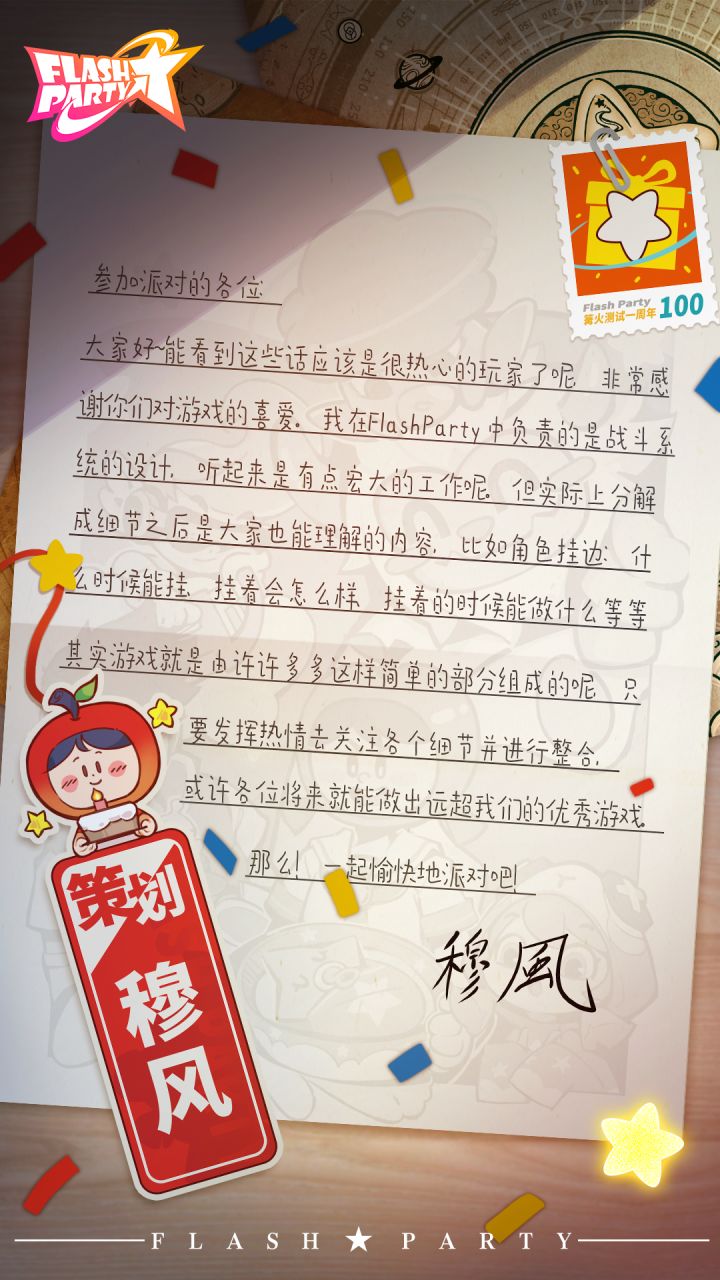 FLASH
PARTY
Flash Party
篝火测试一周年
100
参加派对的各位:
大家好~能看到这些话应该是很热心的玩家了呢 非常感
谢你们对游戏的喜爱。我在FlashParty中负责的是战斗系
统的设计,听起来是有点宏大的工作呢。但实际上分解
成细节之后是大家也能理解的内容,比如角色挂边:什
么时候能挂、挂着会怎么样、挂着的时候能做什么等等
其实游戏就是由许许多多这样简单的部分组成的呢 只
要发挥热情去关注各个细节并进行整合,
或许各位将来就能做出远超我们的优秀游戏。
那么!一起愉快地派对吧!
穆風
策划
穆风
FLASH★PARTY